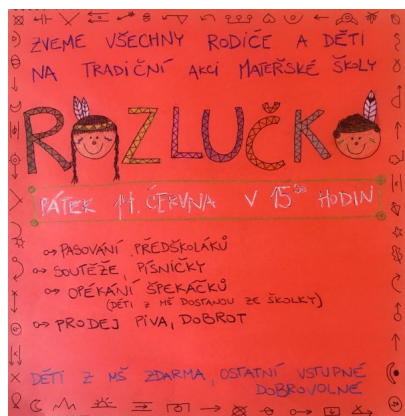 ZVEME VŠECHNY RODIČE A DĚTI
NA TRADIČNÍ AKCI MATEŘSKÉ ŠKOLY
RAZLUČKA
PÁTEK 14. ČERVNA V 15³⁰ HODIN
PASOVÁNÍ PŘEDŠKOLÁKŮ
SOUTĚŽE, PÍSNIČKY
OPÉKÁNÍ ŠPEKÁČKŮ
(DĚTI Z MŠ DOSTANOU ZE ŠKOLKY)
PRODEJ PIVA, DOBROT
DĚTI Z MŠ ZDARMA, OSTATNÍ VSTUPNÉ
DOBROVOLNÉ